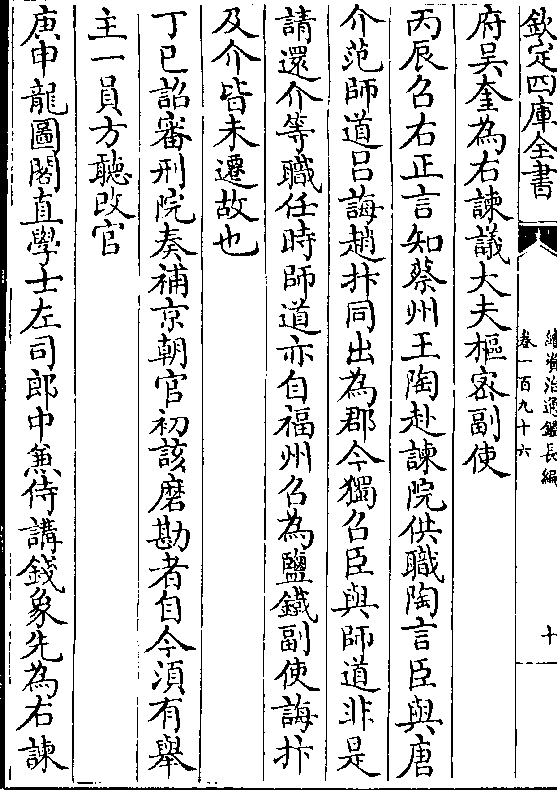 欽定四庫全書
續資治通鑑長編
卷一百九十六
十
府吴奎為右諫議大夫樞宻副使
丙辰召右正言知蔡州王陶赴諫院供職陶言臣與唐
介范師道吕誨趙抃同出為郡今獨召臣與師道非是
請還介等職任時師道亦自福州召為鹽鐵副使誨抃
及介皆未遷故也
丁巳詔審刑院奏補京朝官初該磨勘者自今湏有舉
主一員方聽改官
庚申龍圖閣直學士左司郎中兼侍講錢象先為右諫